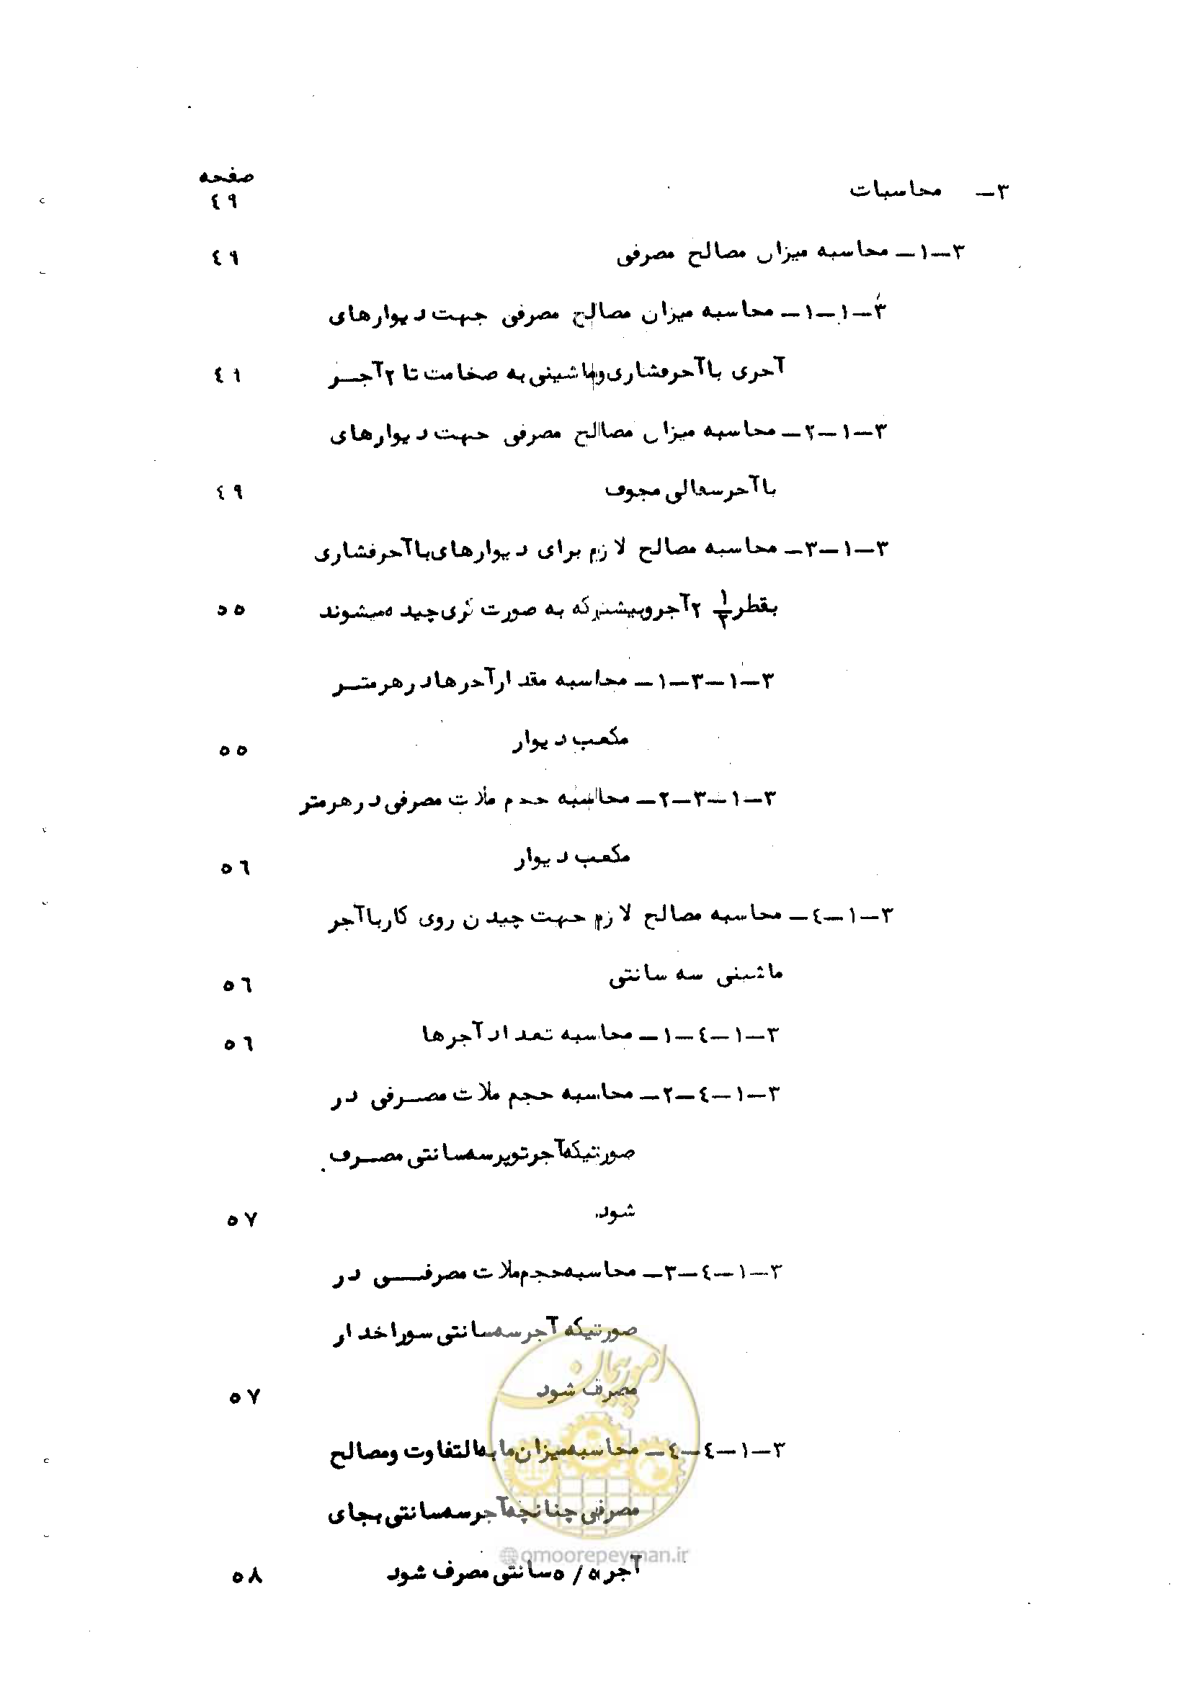 صفحه
۳- محاسبات ٤٩
۳-۱- محاسبه میزان مصالح مصرفی ٤٩
۳-۱-۱- محاسبه میزان مصالح مصرفی جهت دیوارهای
آجری با آجرفشاری وماشینی به ضخامت تا ۲ آجر ٤٩
۳-۱-۲- محاسبه میزان مصالح مصرفی جهت دیوارهای
با آجرسفالی مجوف ٤٩
۳-۱-۳- محاسبه مصالح لازم برای دیوارهای با آجرفشاری
بقطر ۱/۲ ۲ آجروبیشترکه به صورت کری چیده میشوند ۵۵
۳-۱-۳-۱- محاسبه مقدار آجرهادرهرمتر
مکعب دیوار ۵۵
۳-۱-۳-۲- محاسبه حجم ملات مصرفی درهرمتر
مکعب دیوار ۵٦
۳-۱-٤- محاسبه مصالح لازم جهت چیدن روی کارباآجر
ماشینی سه سانتی ۵٦
۳-۱-٤-۱- محاسبه تعداد آجرها ۵٦
۳-۱-٤-۲- محاسبه حجم ملات مصرفی در
صورتیکه آجرتوپرسه سانتی مصرف
شود. ۵۷
۳-۱-٤-۳- محاسبه حجم ملات مصرفی در
صورتیکه آجرسه سانتی سوراخدار
مصرف شود ۵۷
۳-۱-٤-٤- محاسبه میزان مابه التفاوت ومصالح
مصرفی چنانچه آجرسه سانتی بجای
آجر۵/۵ سانتی مصرف شود ۵۸
امور پیمان
@omoorepeyman.ir